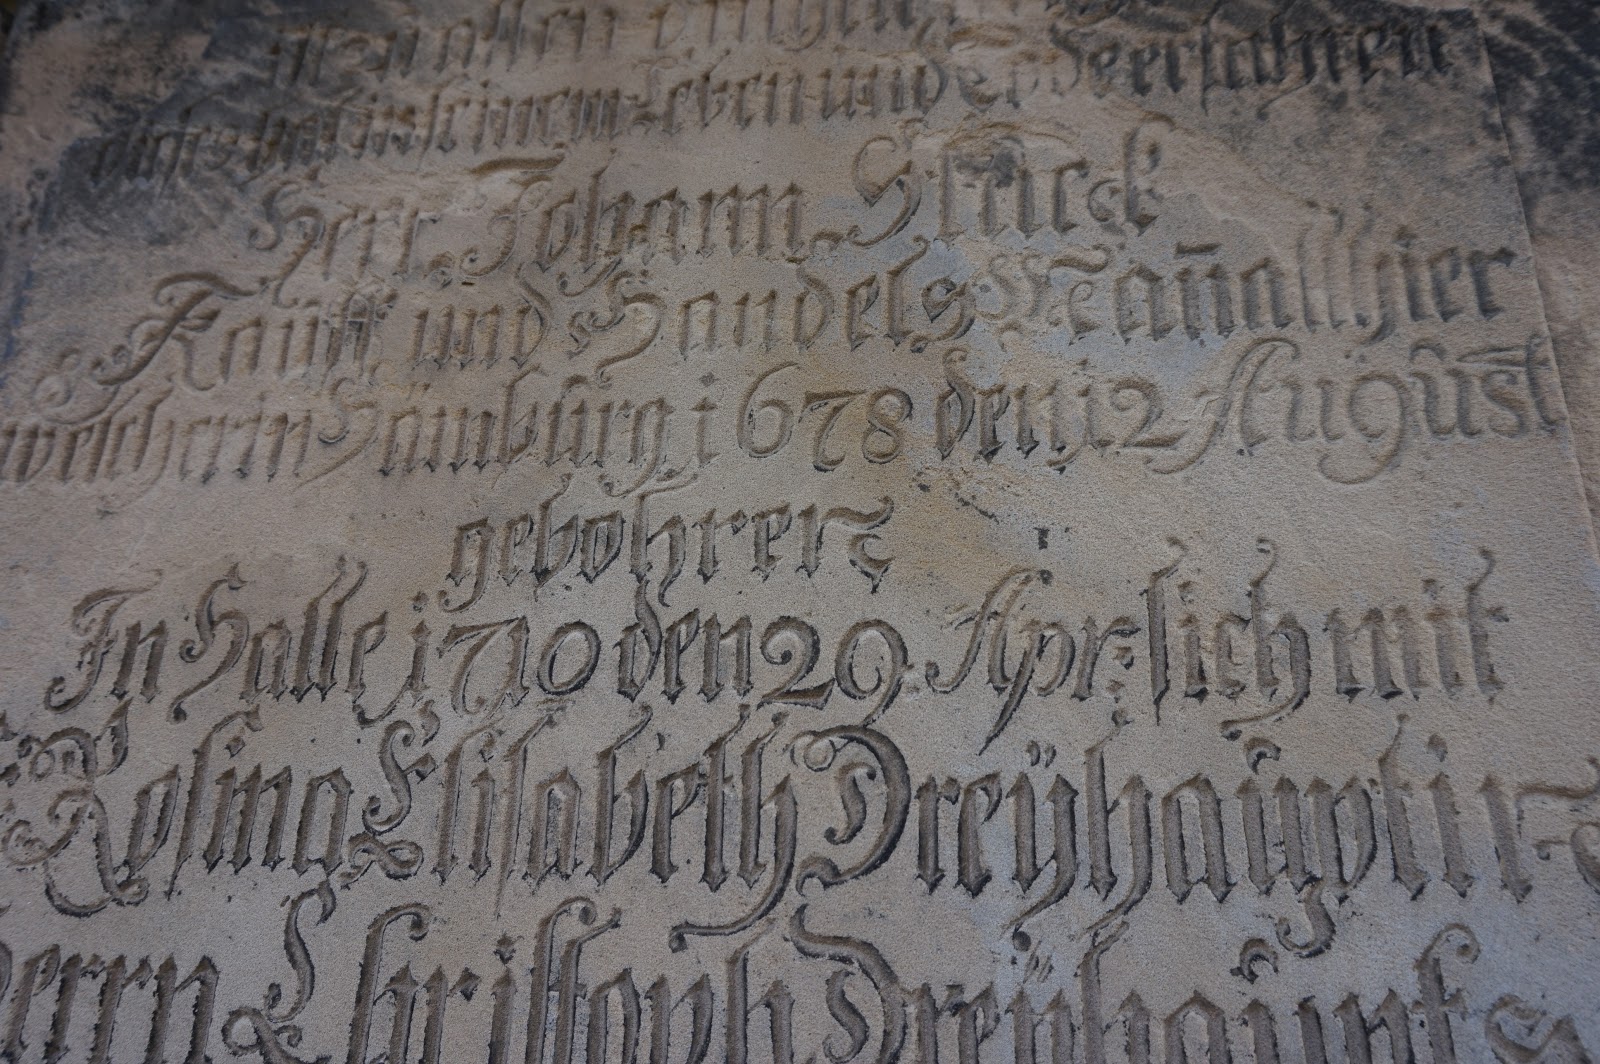 dieses hat in seinem Leben und Tode erfahren
Herr. Johann Stück
Kauff und Handels Mañ allhier
welcher in Hamburg 1678 den 12 August
gebohren
In Halle 1710 den 29 Apr: sich mit
Fr. Rosina Elisabeth Dreÿhauptin
Herrn Christoph Dreÿhaupts